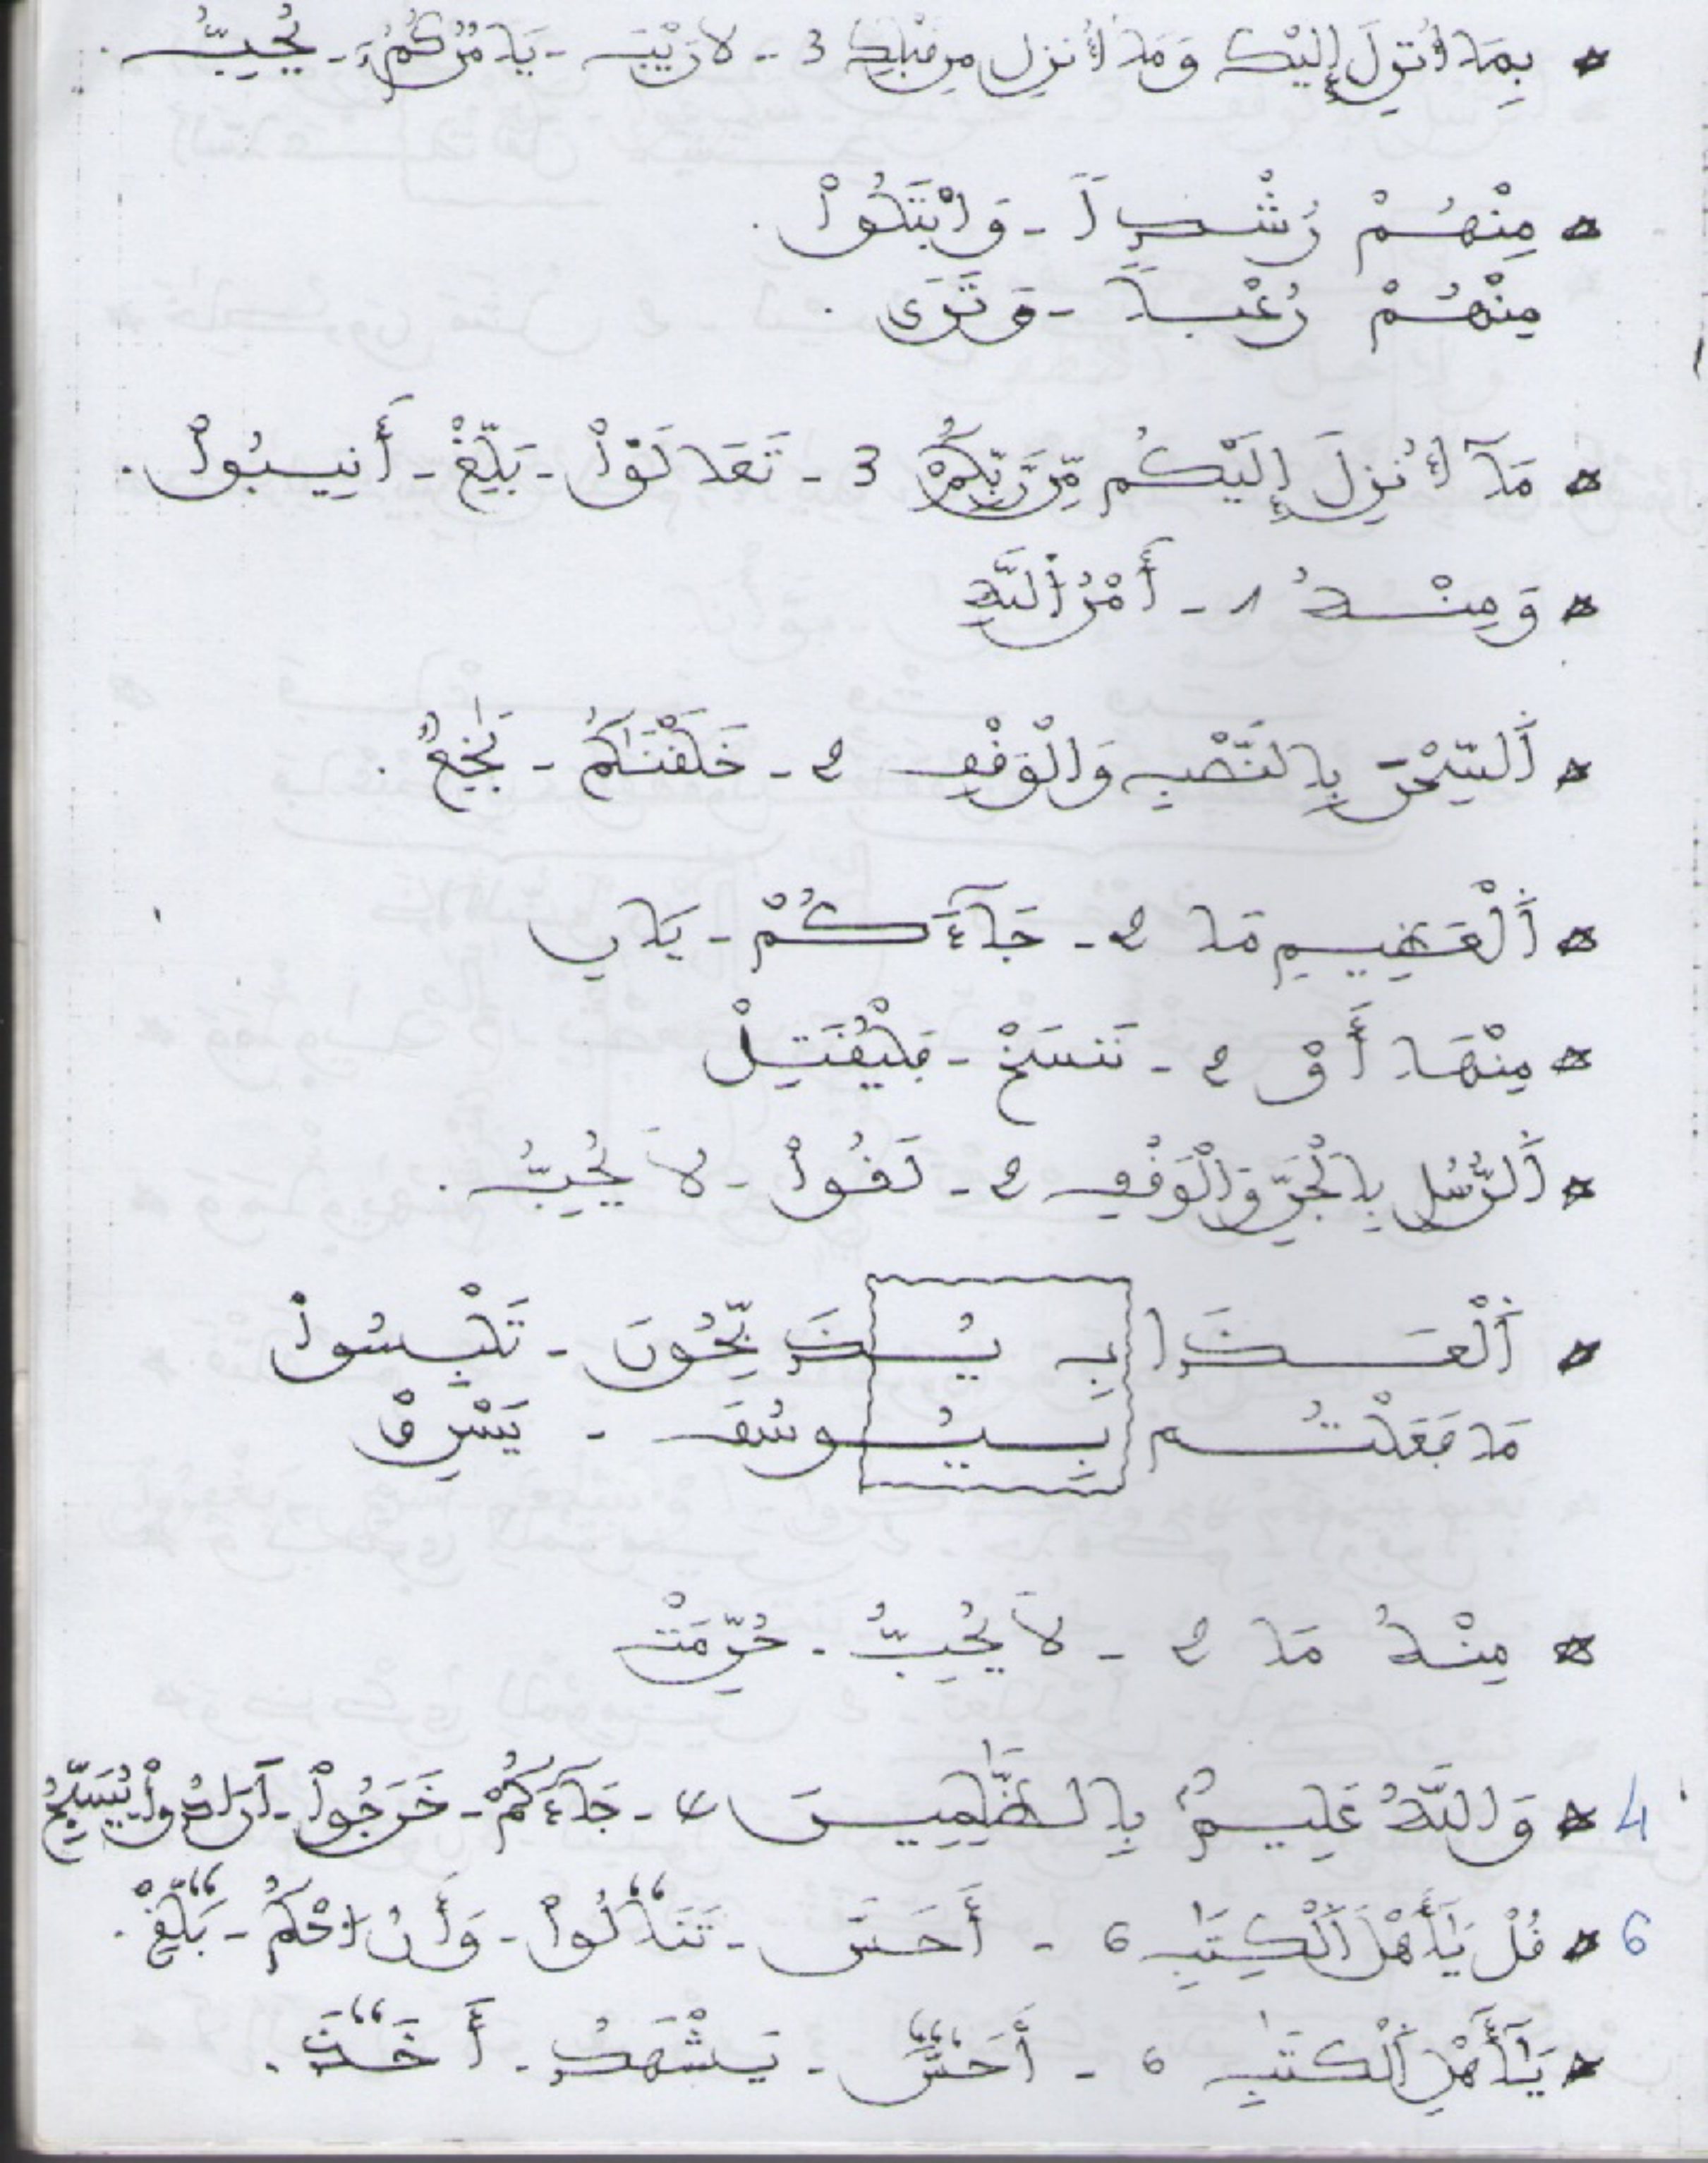 * بِمَا أُنزِلَ إِلَيْكَ وَمَا أُنزِلَ مِن قَبْلِكَ 3 - لاَ رَيْبَ - يَامُرُكُمُ - يُحِبُّ.
* مِنْهُمْ رُشْداً - وَابْتَلُواْ.
مِنْهُمْ رُعْباً - وَتَرَى.
* مَآ أُنزِلَ إِلَيْكُم مِّن رَّبِّكُمْ 3 - تَعَالَوْاْ - بَلِّغْ - أَنِيبُواْ.
* وَمِنْهُ 1 - أَمْرُ اللَّهِ
* السِّجْنَ بِالنَّصْبِ وَالْوَقْفِ 2 - خَلَقْنَاكُمْ - بَٰخِعٌ.
* الْعَظِيمِ مَا 2 - جَآءَكُمْ - يَابِ
* مِنْهَا أَوْ 2 - نَنسَخْ - فَلْيُقَٰتِلْ
* الرُّسُلِ بِالْجَرِّ وَالْوَقْفِ 2 - لَقُواْ - لاَ يُحِبُّ.
* الْعَذَابِ يُذَبِّحُونَ - تَلْبِسُواْ
مَا فَعَلْتُم بِيُوسُفَ - يَسْرِقْ
* مِنْهُ مَا 2 - لاَ يُحِبُّ - حُرِّمَتْ
4 * وَاللَّهُ عَلِيمٌ بِالظَّٰلِمِينَ 4 - جَآءَكُمْ - خَرَجُواْ - أَرَادُواْ - يُسَبِّحُ
6 * قُلْ يَٰأَهْلَ الْكِتَٰبِ 6 - أَحَسَّ - تَنَالُواْ - وَأَنُ احْكُم - بَلِّغْ.
* يَٰأَهْلَ الْكِتَٰبِ 6 - أَحَسَّ - يَشْهَدُ - أَخَذَ.